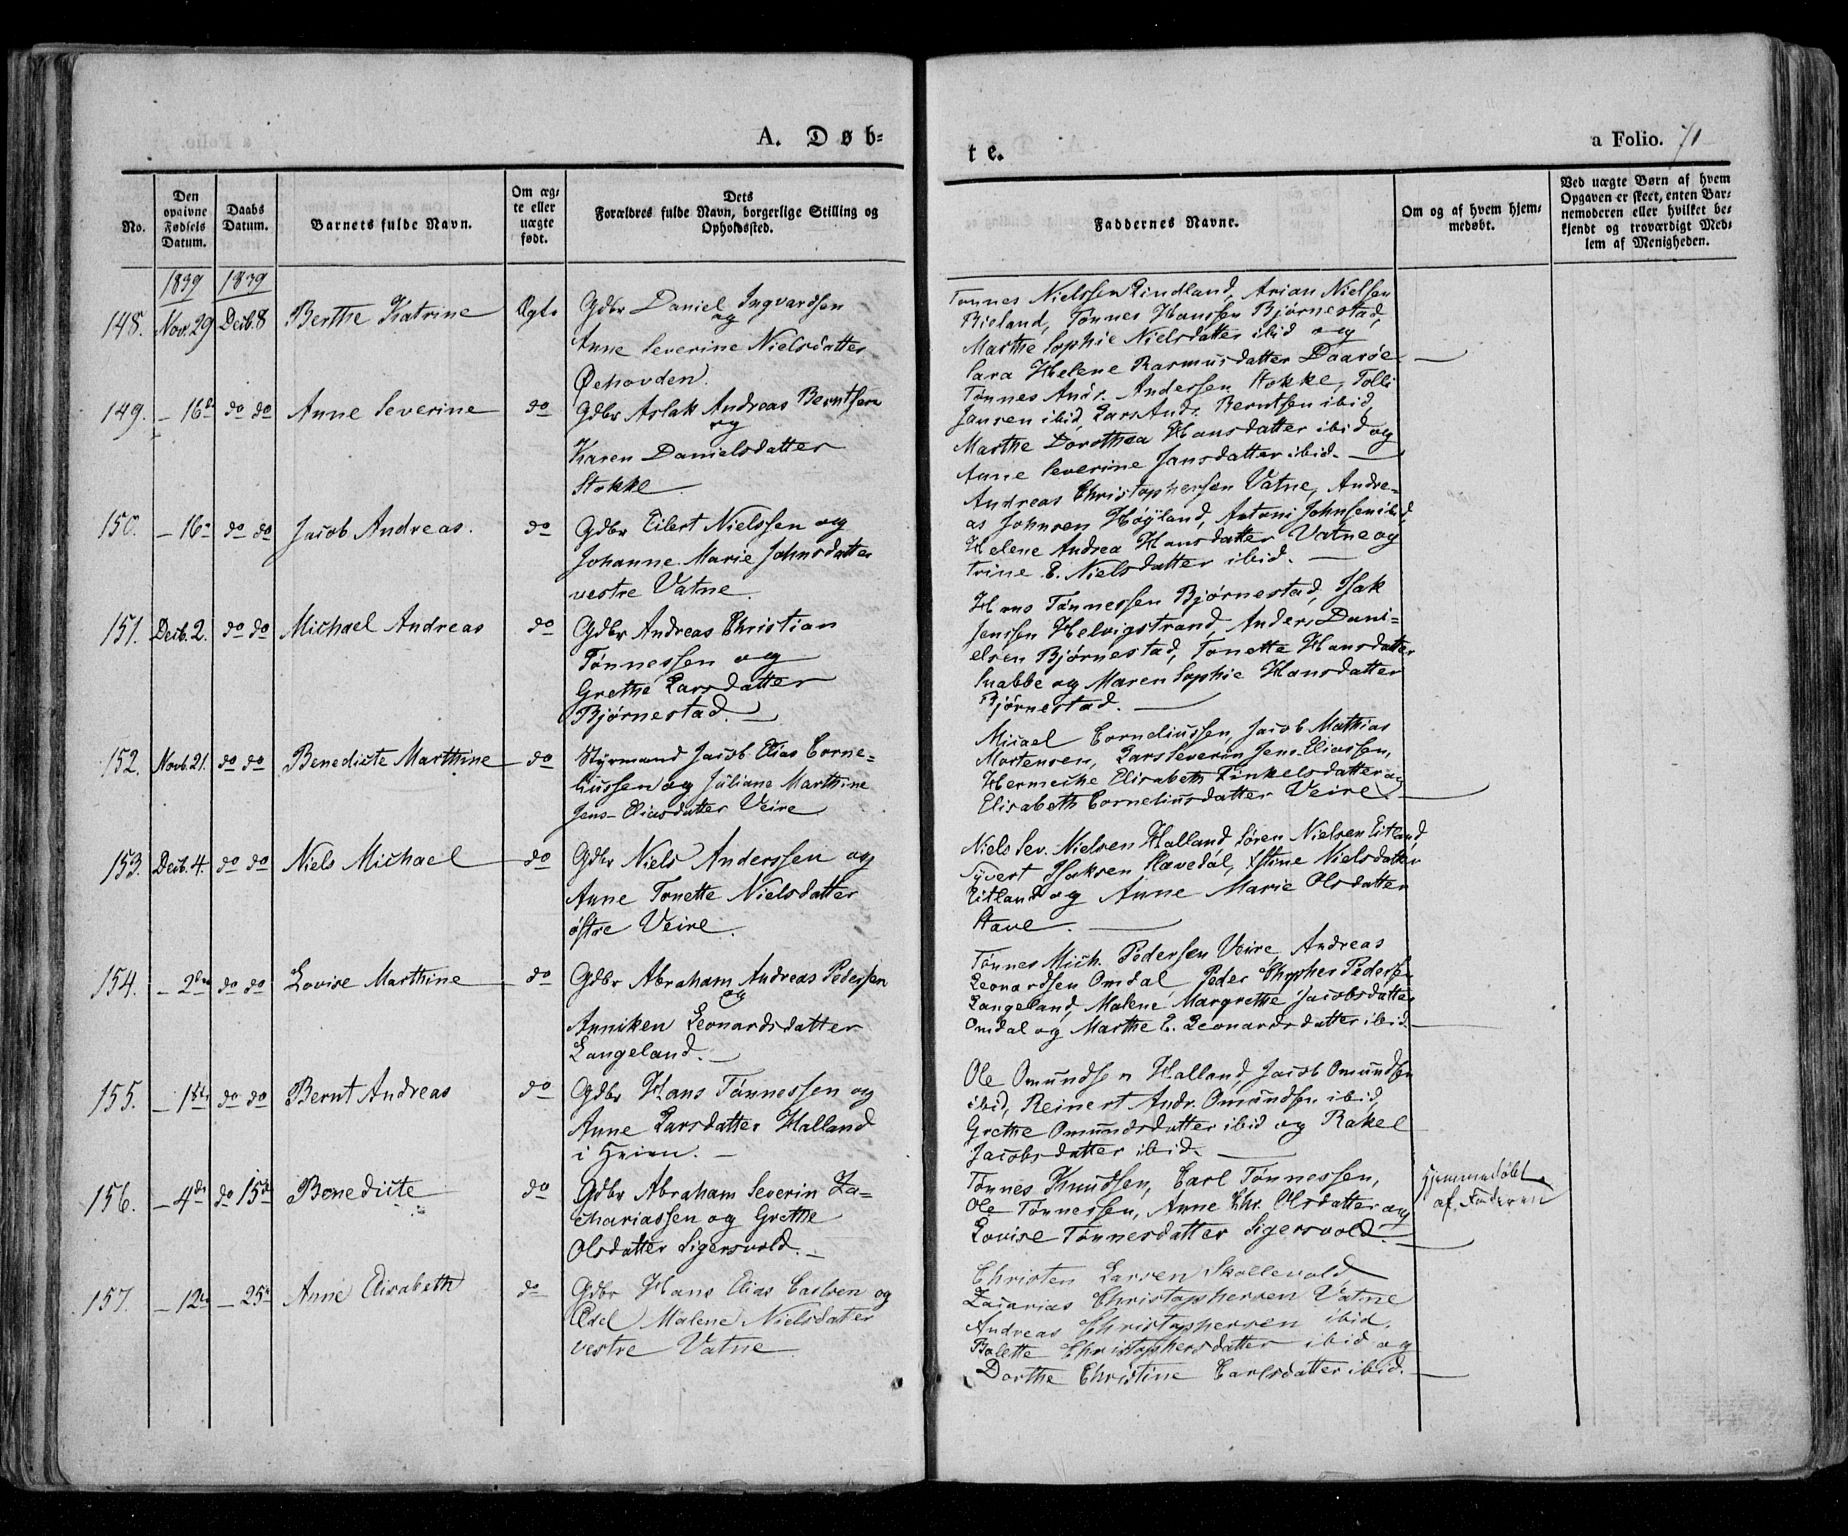 A. Døb-
No.
Den opgivne Fødsels Datum.
Daabs Datum.
Barnets fulde Navn.
Om ægte eller uægte født.
Dets Forældres fulde Navn, borgerlige Stilling og Opholdssted.
1839 1839
148. Nov. 29 Decb. 8 Berthe Katrine Ægte Gdbr Daniel Ingvardsen
og
Anne Severine Nielsdatter
Øehovden.
149. - 16de do do Anne Severine do Gdbr Aslak Andreas Berntsen
og
Karen Danielsdatter
Stokke.
150. - 16 do do Jacob Andreas. do Gdbr Eilert Nielssen og
Johanne Marie Johnsdatter
vestre Vatne.
151. Decb. 2. do do Michael Andreas do Gdbr Andreas Christian
Tønnessen og
Grethe Larsdatter
Bjørnestad.
152. Novb. 21. do do Benedicte Marthine do Styrmand Jacob Elias Corne-
liussen og Juliane Marthine
Jens-Eliasdatter Veire
153. Decb. 4. do do Niels Michael do Gdbr Niels Anderssen og
Anne Tonette Nielsdatter
østre Veire.
154. - 2den do do Lovise Marthine do Gdbr Abraham Andreas Pedersen
og
Anniken Leonardsdatter
Langeland.
155. - 1ste do do Bernt Andreas do Gdbr Hans Tønnessen og
Anne Larsdatter Halland
i Heien.
156. - 4de do 15de Benedicte do Gdbr Abraham Severin Za-
chariassen og Grethe
Olsdatter Sigersvold.
157. - 12te - 25de Anne Elisabeth do Gdbr Hans Elias Carlsen og
Edel Malene Nielsdatter
vestre Vatne.
te.
a Folio. 71
Faddernes Navne.
Om og af hvem hjemmedøbt.
Ved uægte Børn af hvem Opgaven er skeet, enten Barnemoderen eller hvilket bekjendt og troværdigt Medlem af Menigheden.
Tønnes Nielssen Rindland, Arian Nielsen
Bieland, Tønnes Hanssen Bjørnestad,
Marthe Sophie Nielsdatter ibid og
Sara Helene Rasmusdatter Daarøe
Tønnes Andr. Andersen Stokke, Tolli
Jansen ibid, Lars Andr. Berntsen ibid,
Marthe Dorothea Hansdatter ibid og
Anne Severine Jansdatter ibid.
Andreas Christophersen Vatne, Andre-
as Johnsen Høyland, Antoni Johnsen ibid,
Helene Andrea Hansdatter Vatne og
Trine E. Nielsdatter ibid.
Hans Tønnessen Bjørnestad, Isak
Jenssen Helvigstrand, Anders Dani-
elsen Bjørnestad, Tonette Hansdatter
Snabbe og Maren Sophie Hansdatter
Bjørnestad.
Micael Corneliussen, Jacob Mathias
Mortensen, Lars Severin Jens Eliassen,
Hermeche Elisabeth Finkelsdatter og
Elisabeth Corneliusdatter Veire
Niels Sev. Nielsen Halland, Sören Nielsen Eitland,
Syvert Isaksen Stavedal, Stine Nielsdatter
Eitland og Anne Marie Olsdatter
Stave.
Tønnes Mich. Pedersen Veire, Andreas
Leonardsen Omdal, Peder Chrpher Pedersen
Langeland, Malene Margrethe Jacobsdatter
Omdal og Marthe E. Leonardsdatter ibid.
Ole Omundsen Halland, Jacob Omundsen
ibid, Reinert Andr. Omundsen ibid,
Grethe Omundsdatter ibid og Rakel
Jacobsdatter ibid.
Tønnes Knudsen, Carl Tønnessen,
Ole Tønnessen, Anne Chr. Olsdatter og
Lovise Tønnesdatter Sigersvold.
Hjemmedøbt
af Faderen
Christen Larsen Skollevold
Zacarias Christophersen Vatne
Andreas Christophersen ibid.
Balette Christophersdatter ibid og
Dorthe Christine Carlsdatter ibid.